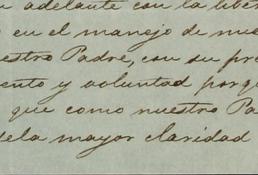 adelante con la libe
en el manejo de nue
estro Padre, con su pre
ento y voluntad porq
que como nuestro Pa
dela mayor claridad